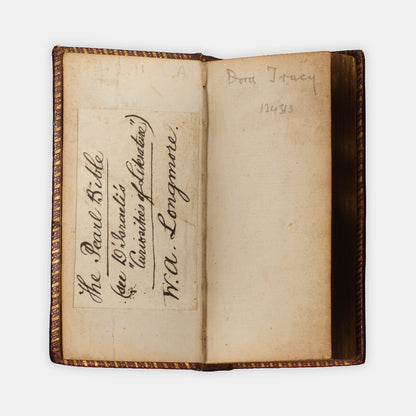 The Pearl Bible
(see D'Israeli's
"Curiosities of Literature")
W. A. Longmore.
Dora Tracy